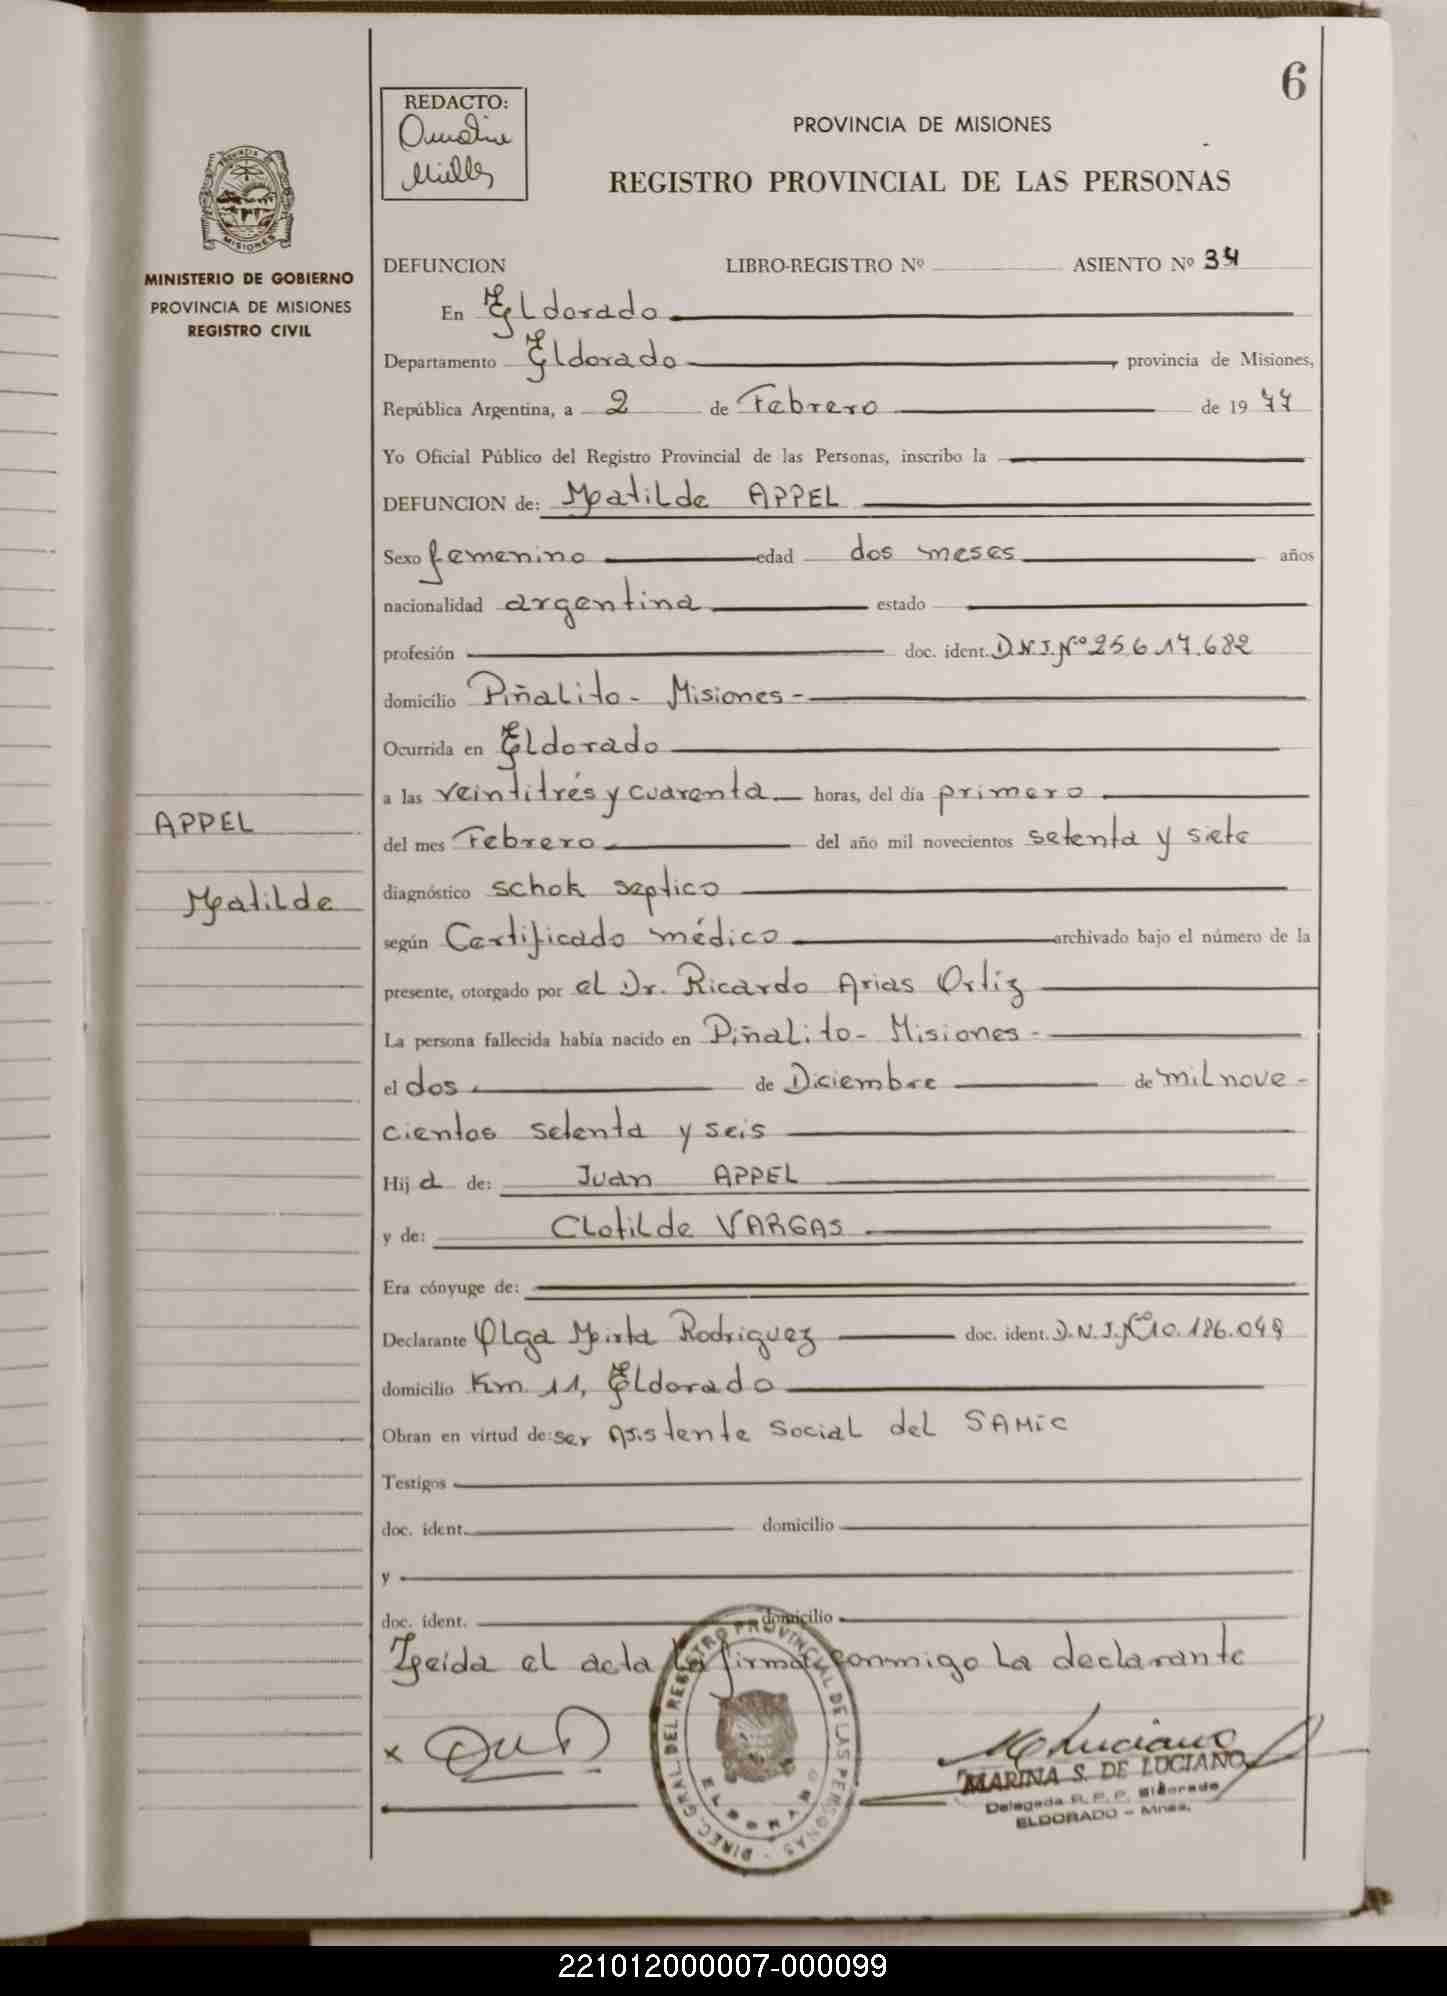 6
REDACTO:
PROVINCIA DE MISIONES
REGISTRO PROVINCIAL DE LAS PERSONAS
PROVINCIA DE
MISIONES
MINISTERIO DE GOBIERNO
PROVINCIA DE MISIONES
REGISTRO CIVIL
DEFUNCION LIBRO-REGISTRO Nº ASIENTO Nº 34
En Eldorado
Departamento Eldorado, provincia de Misiones,
República Argentina, a 2 de Febrero de 1977
Yo Oficial Público del Registro Provincial de las Personas, inscribo la
DEFUNCION de: Matilde APPEL
Sexo femenino edad dos meses años
nacionalidad argentina estado
profesión doc. ident. D.N.I. Nº 25.617.682
domicilio Piñalito - Misiones -
Ocurrida en Eldorado
a las veintitrés y cuarenta horas, del día primero
del mes Febrero del año mil novecientos setenta y siete
diagnóstico schok septico
según Certificado médico archivado bajo el número de la
presente, otorgado por el Dr. Ricardo Arias Ortiz
La persona fallecida había nacido en Piñalito - Misiones -
el dos de Diciembre de mil nove-
cientos setenta y seis
Hija de: Juan APPEL
y de: Clotilde VARGAS
Era cónyuge de:
Declarante Olga Mirta Rodriguez doc. ident. D.N.I. Nº 10.186.048
domicilio Km. 11, Eldorado
Obran en virtud de: ser Asistente Social del SAMIC
Testigos
doc. ident. domicilio
y
doc. ident. domicilio
Leida el acta la firma conmigo la declarante
APPEL
Matilde
x
DIREC. GRAL. DEL REGISTRO PROVINCIAL DE LAS PERSONAS
ELDORADO
M Luciano
MARINA S. DE LUCIANO
Delegada R. P. P. Eldorado
ELDORADO - Mnes.
221012000007-000099